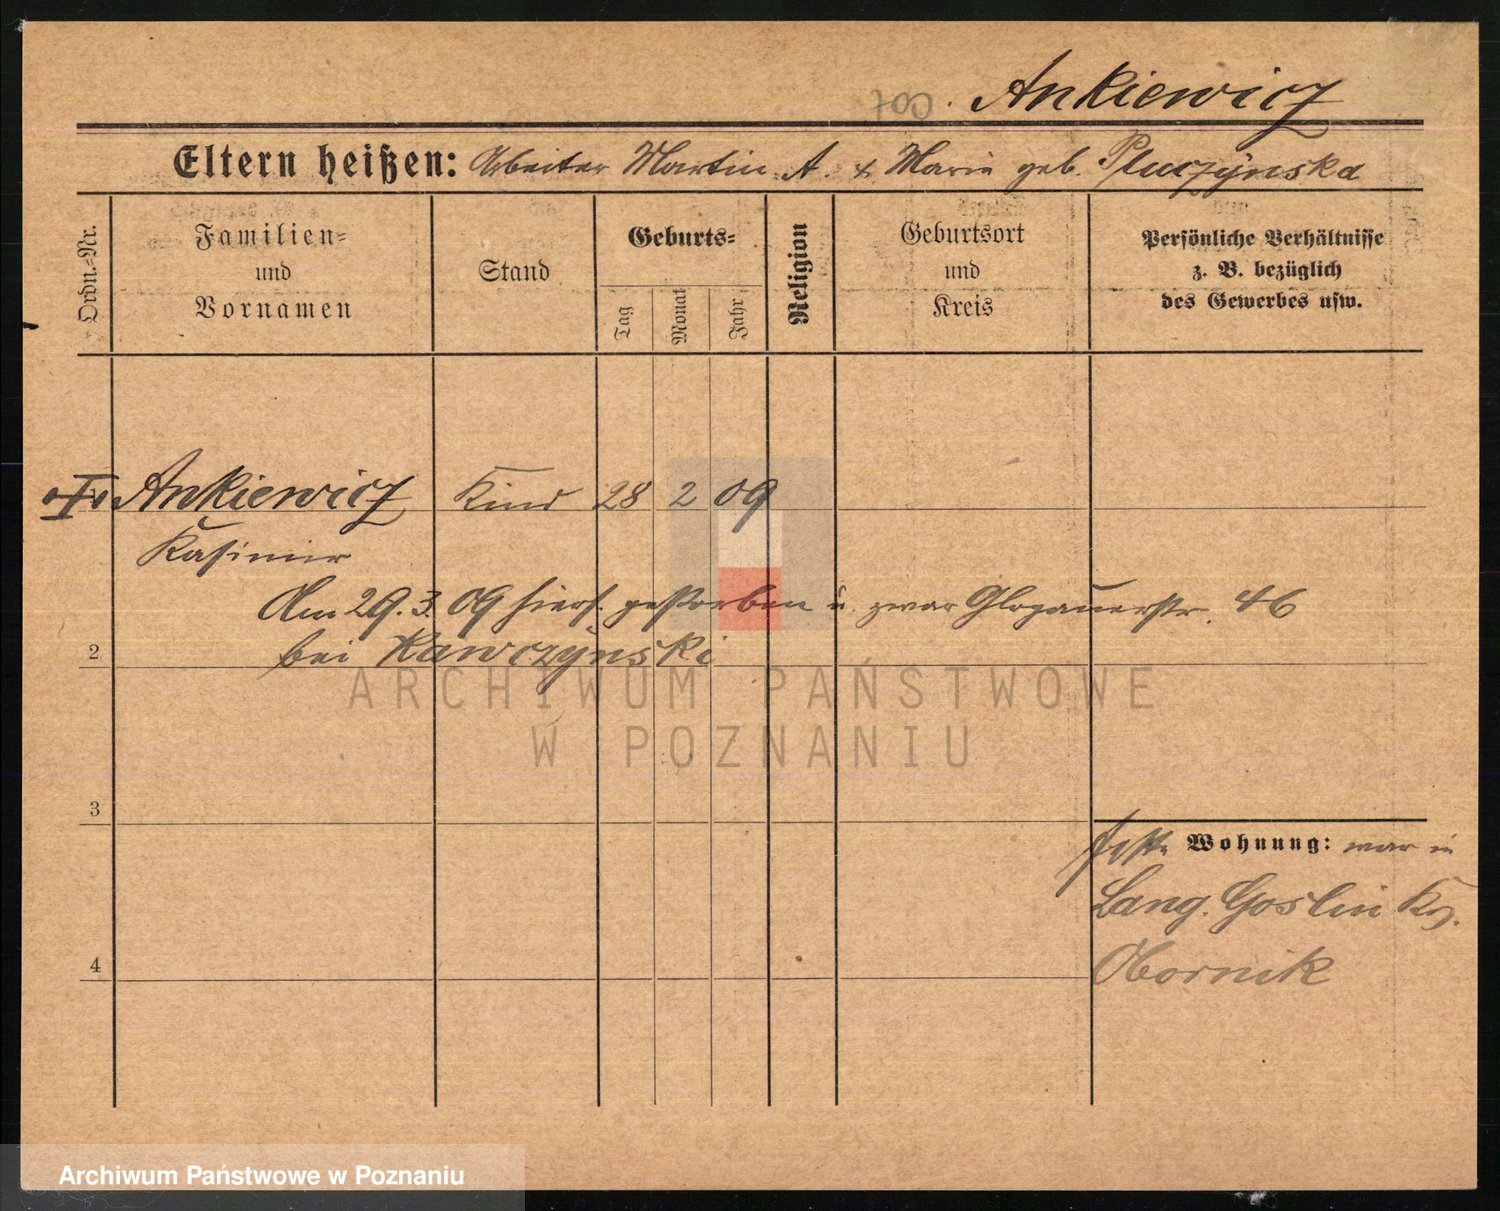 tot. Ankiewicz
Eltern heißen: Arbeiter Martin A. & Marie geb. Pluczynska
Ordn.-Nr.
Familien-
und
Vornamen
Stand
Geburts-
Tag
Monat
Jahr
Religion
Geburtsort
und
Kreis
Persönliche Verhältnisse
z. B. bezüglich
des Gewerbes usw.
Ankiewicz Kind 28 2 09
Kasimir
Am 29.3.09 hiers. gestorben u. zwar Glogauerstr. 46
2 bei Kawczynski
ARCHIWUM PAŃSTWOWE
W POZNANIU
3
Wohnung: war in
Lang. Goslin Kr.
4 Obornik
Archiwum Państwowe w Poznaniu